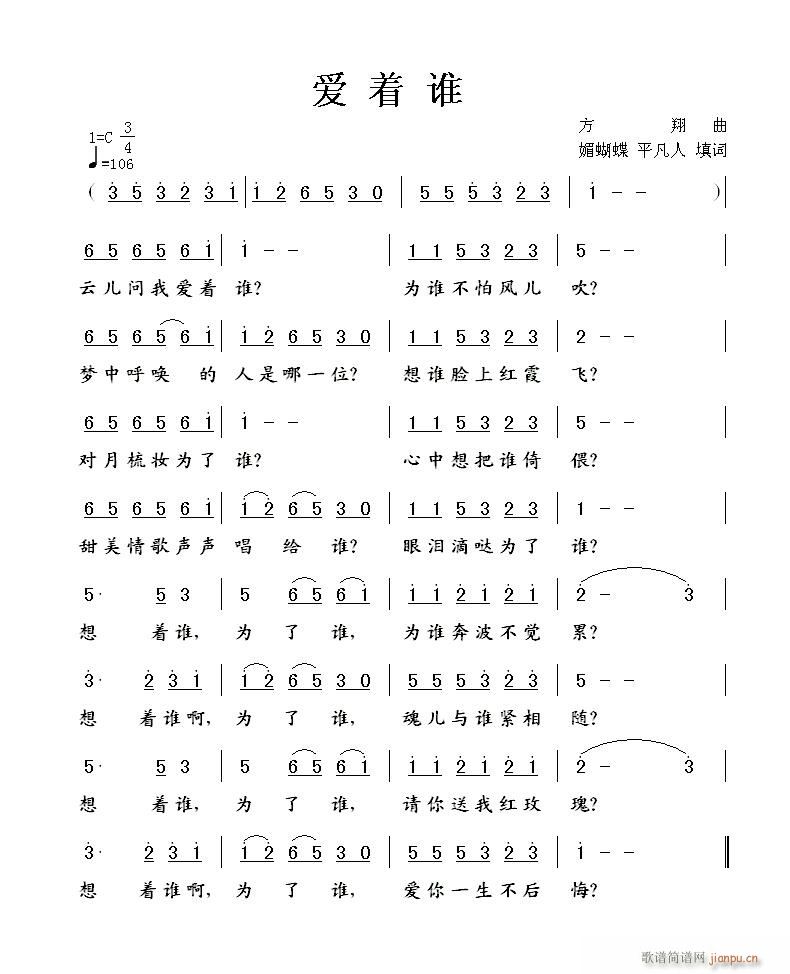 爱着谁
方 翔 曲
1=C 3/4
媚蝴蝶 平凡人 填词
♩=106
( 3 5 3 2 3 1 | 1 2 6 5 3 0 | 5 5 5 3 2 3 | 1 - - ) |
6 5 6 5 6 1 | 1 - - | 1 1 5 3 2 3 | 5 - - |
云儿问我爱着 谁? 为谁不怕风儿 吹?
6 5 6 5 6 1 | 1 2 6 5 3 0 | 1 1 5 3 2 3 | 2 - - |
梦中呼唤 的 人是哪一位? 想谁脸上红霞 飞?
6 5 6 5 6 1 | 1 - - | 1 1 5 3 2 3 | 5 - - |
对月梳妆为了 谁? 心中想把谁倚 偎?
6 5 6 5 6 1 | 1 2 6 5 3 0 | 1 1 5 3 2 3 | 1 - - |
甜美情歌声声 唱 给 谁? 眼泪滴哒为了 谁?
5· 5 3 | 5 6 5 6 1 | 1 1 2 1 2 1 | 2 - 3 |
想 着谁, 为 了 谁, 为谁奔波不觉 累?
3· 2 3 1 | 1 2 6 5 3 0 | 5 5 5 3 2 3 | 5 - - |
想 着谁啊, 为 了 谁, 魂儿与谁紧相 随?
5· 5 3 | 5 6 5 6 1 | 1 1 2 1 2 1 | 2 - 3 |
想 着谁, 为 了 谁, 请你送我红玫 瑰?
3· 2 3 1 | 1 2 6 5 3 0 | 5 5 5 3 2 3 | 1 - - ‖
想 着谁啊, 为 了 谁, 爱你一生不后 悔?
歌谱简谱网
jianpu.cn